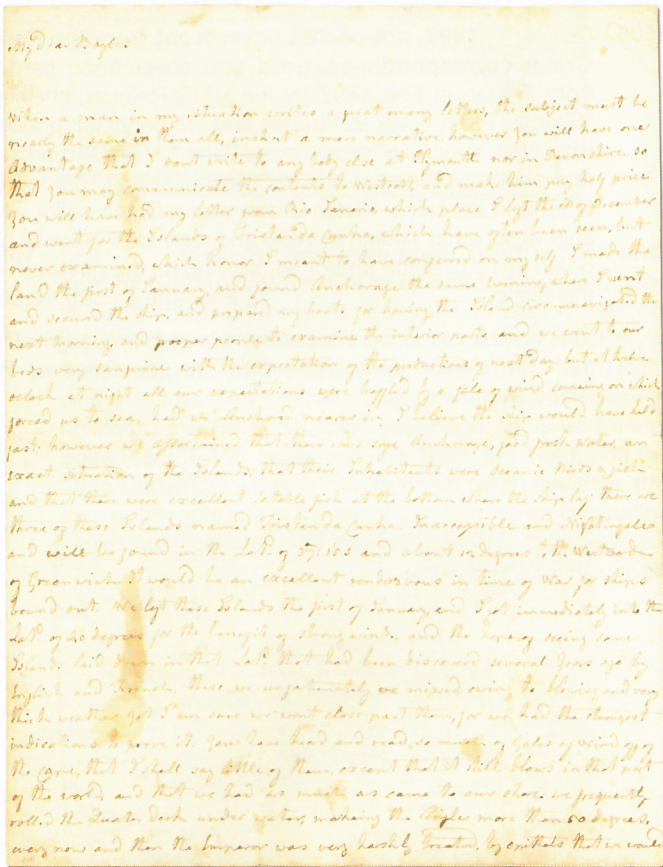 My dear Bayles
When a man in my situation writes a great many letters, the subject must be
nearly the same in them all, in short a mere narrative however you will have one
Advantage that I dont write to any body else at Plymouth nor in Devonshire so
that you may communicate the contents to Westcott, and make him pay half price
you will have had my letter from Rio Janerio which place I left the of December
and went for the Islands of Tristan da Cunha, which have often been seen, but
never examined, which honor I meant to have conferred on my self I made the
land the first of January, and found Anchorage the same evening where I went
and secured the ship, and prepared my boats for having the Island circumnavigated the
next morning, and proper people to examine the interior parts and we went to our
beds very sanguine with the expectation of the productions of next day but at twelve
oclock at night all our expectations were baffled by a gale of wind coming on which
forced us to sea, had we Anchored nearer in, I believe the ship would have held
fast. however we ascertained that there was safe Anchorage, good fresh water, an
exact situation of the Islands, that their Inhabitants were Oceanic birds & fish
and that there were excellent eatable fish at the bottom where the ship lay; there are
three of these Islands named Tristan da Cunha Inaccessible and Nightingale
and will be found in the Latd. of 37: S and about 12 degrees to the Westward
of Greenwich It would be an excellent rendezvous in time of War for ships
bound out We left these Islands the first of January and I got immediately into the
Latd. of 40 degrees for the benefit of strong winds, and the hope of seeing some
Islands laid down in that Latd. that had been discovered several years ago by
English and French, these we unfortunately we missed owing to blowing and very
thick weather yet I am sure we went close past them, for we had the strongest
indications to prove it. you have heard and read, so much of Gales of wind off of
the Cape, that I shall say little of them, except that it still blows in that part
of the world, and that we had as much as came to our share we frequently
rolled the Quarter deck under water, making the Angle more than 50 degrees,
every now and then the Emperor was very harshly Treated, by epithets that we would